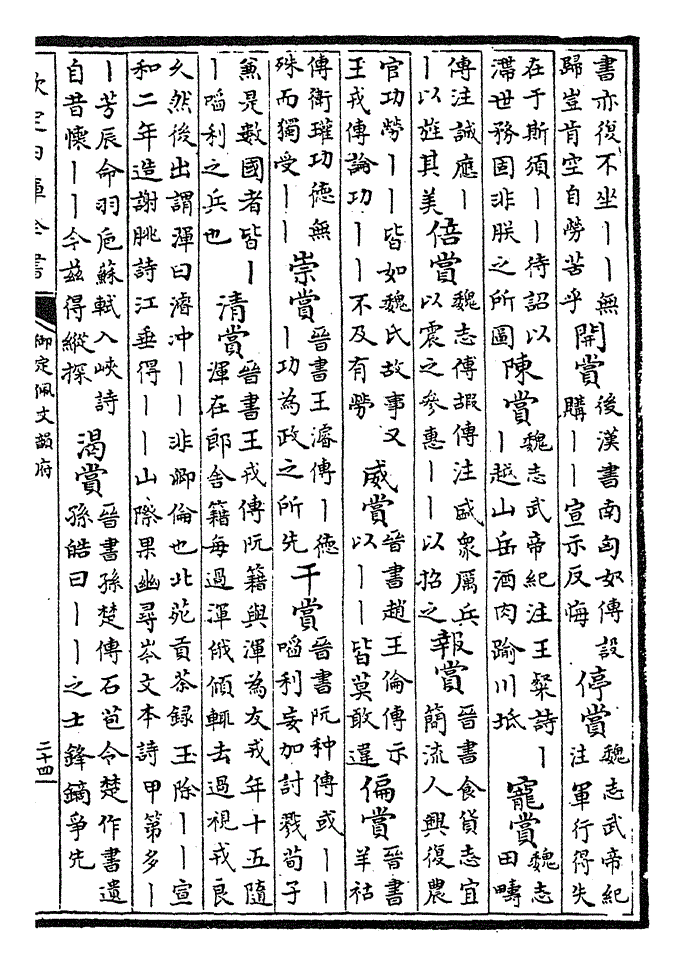 書亦復不坐｜｜無
歸豈肯空自勞苦乎
開賞
後漢書南匈奴傳設
購｜｜宣示反悔
停賞
魏志武帝紀
注軍行得失
在于斯須｜｜待詔以
滯世務固非朕之所圖
陳賞
魏志武帝紀注王粲詩｜
｜越山岳酒肉踰川坻
寵賞
魏志
田疇
傳注誠應｜
｜以旌其美
倍賞
魏志傅嘏傳注盛衆厲兵
以震之參惠｜｜以招之
報賞
晉書食貨志宜
簡流人興復農
官功勞｜｜皆如魏氏故事又
王戎傳論功｜｜不及有勞
威賞
晉書趙王倫傳示
以｜｜皆莫敢違
偏賞
晉書
羊祜
傳衛瓘功德無
殊而獨受｜｜
崇賞
晉書王濬傳｜德
｜功為政之所先
干賞
晉書阮种傳或｜｜
㗖利妄加討戮荀子
兼是數國者皆｜
｜㗖利之兵也
清賞
晉書王戎傳阮籍與渾為友戎年十五隨
渾在郎舍籍每過渾俄傾輒去過視戎良
久然後出謂渾曰濬冲｜｜非卿倫也北苑貢茶録玉除｜｜宣
和二年造謝朓詩江垂得｜｜山際果幽尋岑文本詩甲第多｜
｜芳辰命羽巵蘇軾入峽詩
自昔懷｜｜今茲得縱探
渴賞
晉書孫楚傳石苞令楚作書遺
孫皓曰｜｜之士鋒鏑爭先
欽定四庫全書
御定佩文韻府
二十四